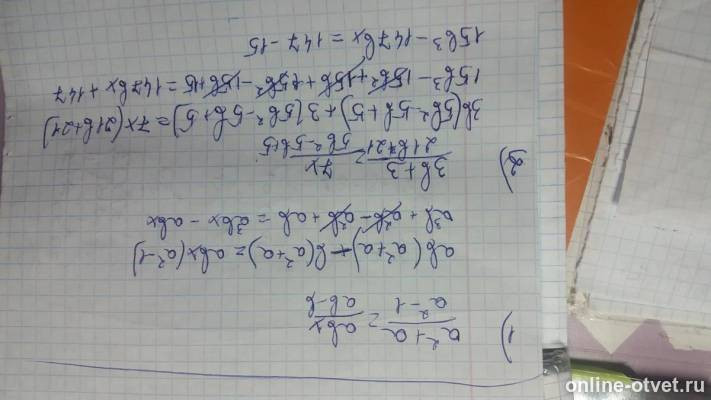 1) a²+a/a²-1 = abx/ab-b
ab(a²+a)-b(a²+a)=abx(a²-1)
a³b+a²b-a²b+ab=a³bx-abx
2) 3b+3/21b+21 = 7x/5b²-5b+5
3b(5b²-5b+5)+3(5b²-5b+5)=7x(21b+21)
15b³-15b²+15b+15b²-15b+15=147bx+147
15b³-147bx=147-15
online-otvet.ru